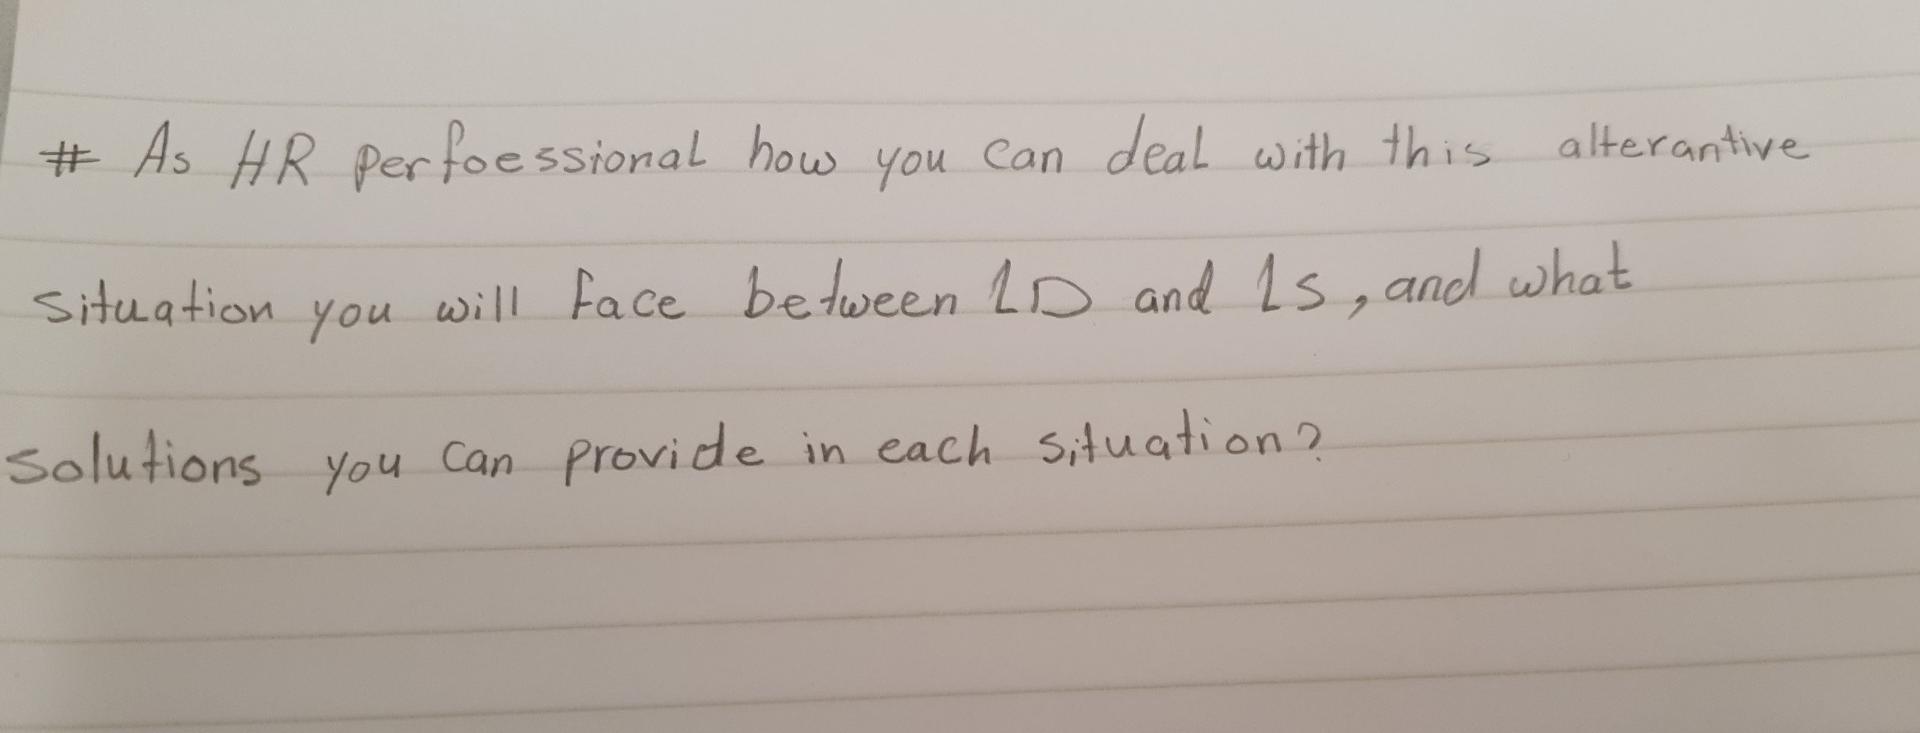 # As HR perfoessional how you can deal with this alterantive
situation you will face between LD and LS, and what
solutions you can provide in each situation?